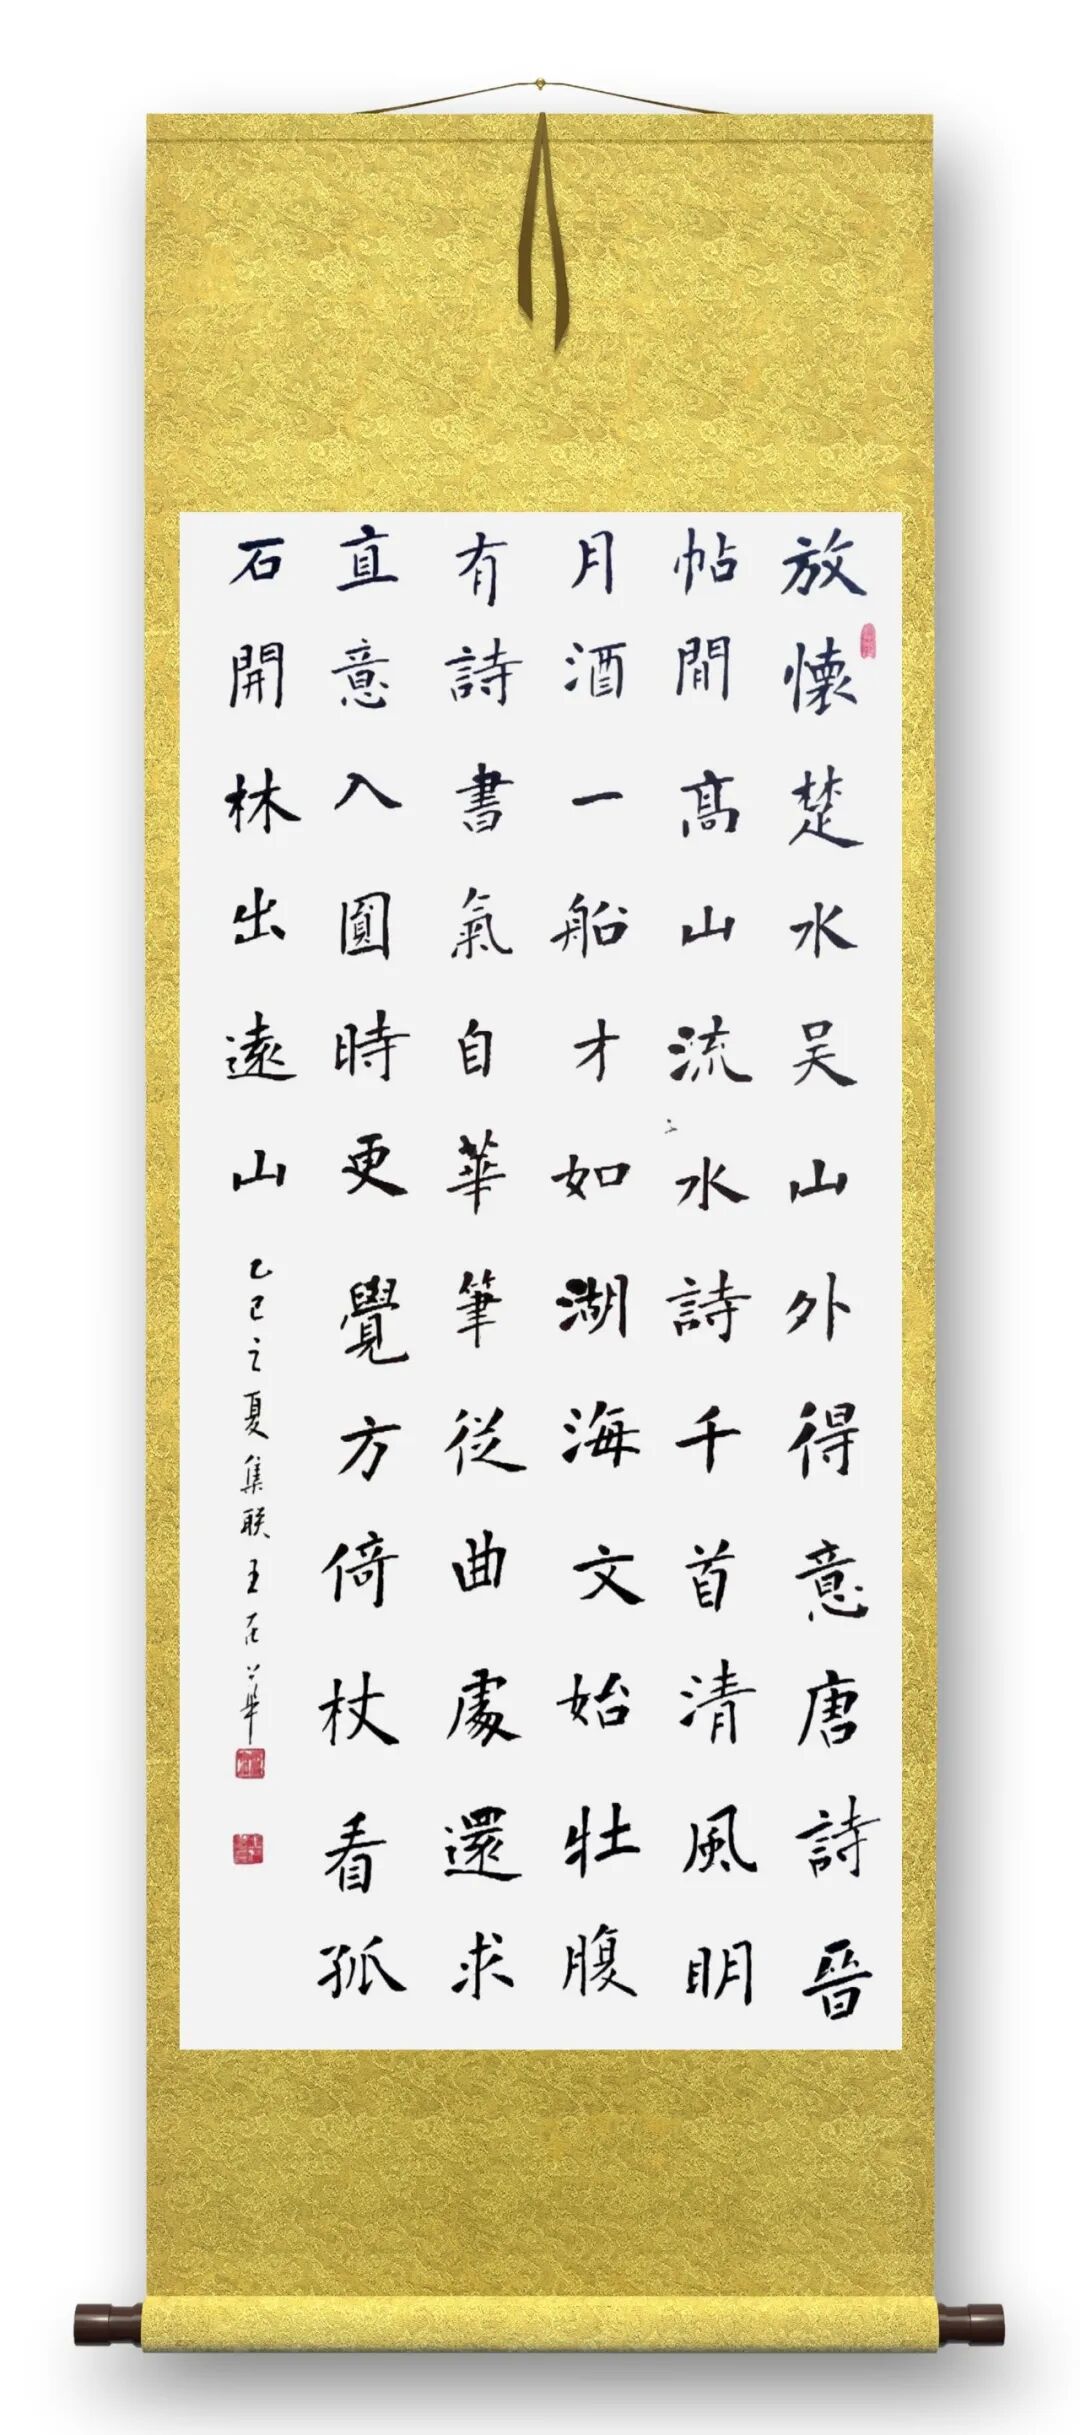 放懷楚水吴山外得意唐詩晉
帖間髙山流水詩千首清風明
月酒一船才如湖海文始牡腹
有詩書氣自華筆從曲處還求
直意入圓時更覺方倚杖看孤
石開林出遠山
乙巳之夏集联王華